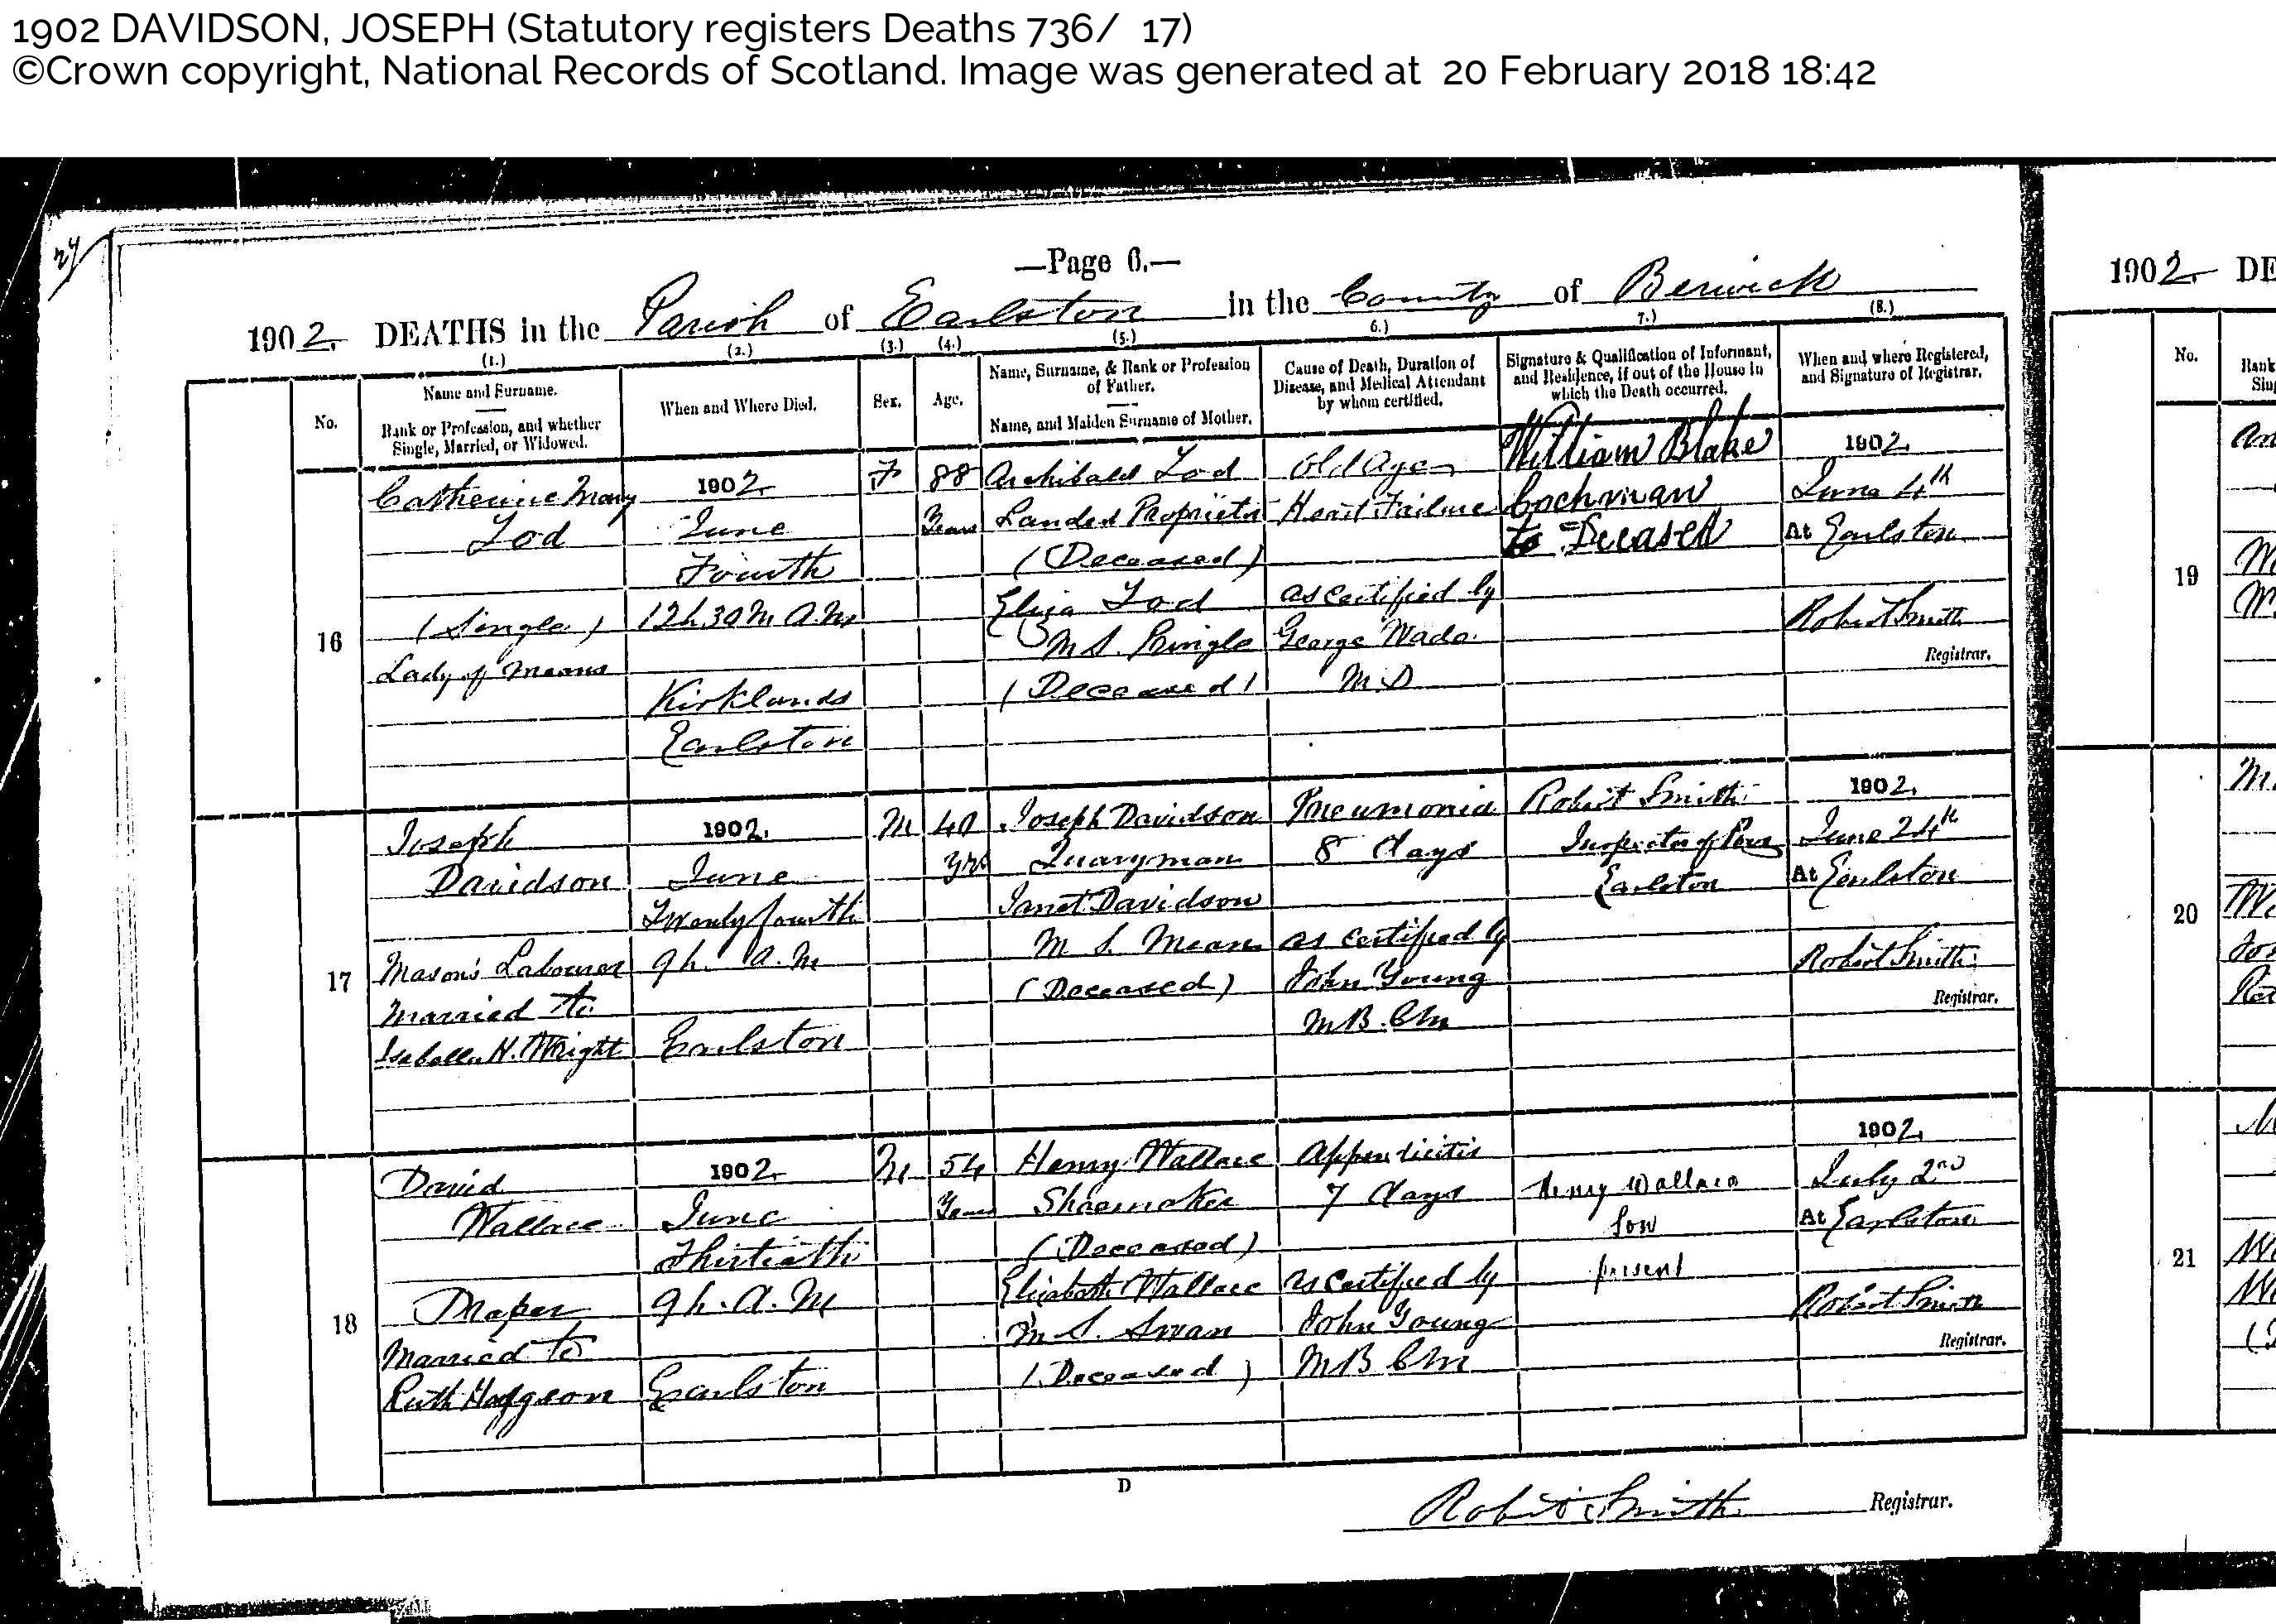 1902 DAVIDSON, JOSEPH (Statutory registers Deaths 736/ 17)
©Crown copyright, National Records of Scotland. Image was generated at 20 February 2018 18:42
—Page 6.—
1902. DEATHS in the Parish of Earlston in the County of Berwick
(1.) (2.) (3.) (4.) (5.) 6.) 7.) (8.)
No.
Name and Surname.
Rank or Profession, and whether
Single, Married, or Widowed.
When and Where Died.
Sex.
Age.
Name, Surname, & Rank or Profession
of Father.
Name, and Maiden Surname of Mother.
Cause of Death, Duration of
Disease, and Medical Attendant
by whom certified.
Signature & Qualification of Informant,
and Residence, if out of the House in
which the Death occurred.
When and where Registered,
and Signature of Registrar.
16
Catherine Mary
Tod
(Single)
Lady of Means
1902
June
Fourth
12h. 30 M A.M.
Kirklands
Earlston
F
88
Years
Archibald Tod
Landed Proprietor
(Deceased)
Eliza Tod
M.S. Pringle
(Deceased)
Old Age
Heart Failure
as certified by
George Wade
M.D
William Blake
Cochman
to Deceased
1902
June 4th
At Earlston
Robert Smith
Registrar.
17
Joseph
Davidson
Mason's Labourer
Married to
Isabella H. Wright
1902.
June
Twenty fourth
9h. A.M
Earlston
M
40
yrs
Joseph Davidson
Quaryman
Janet Davidson
M.S. Means
(Deceased)
Pneumonia
8 days
as certified by
John Young
M.B. C.M
Robert Smith
Inspector of Poor
Earlston
1902.
June 24th
At Earlston
Robert Smith
Registrar.
18
David
Wallace
Draper
Married to
Ruth Hodgson
1902
June
Thirtieth
9h. A.M
Earlston
M
54
Years
Henry Wallace
Shoemaker
(Deceased)
Elizabeth Wallace
M.S. Swan
(Deceased)
Appendicitis
7 days
as certified by
John Young
M.B C.M
Henry Wallace
Son
present
1902.
July 2nd
At Earlston
Robert Smith
Registrar.
D
Robert Smith Registrar.
1902 DE
No.
19
20
21